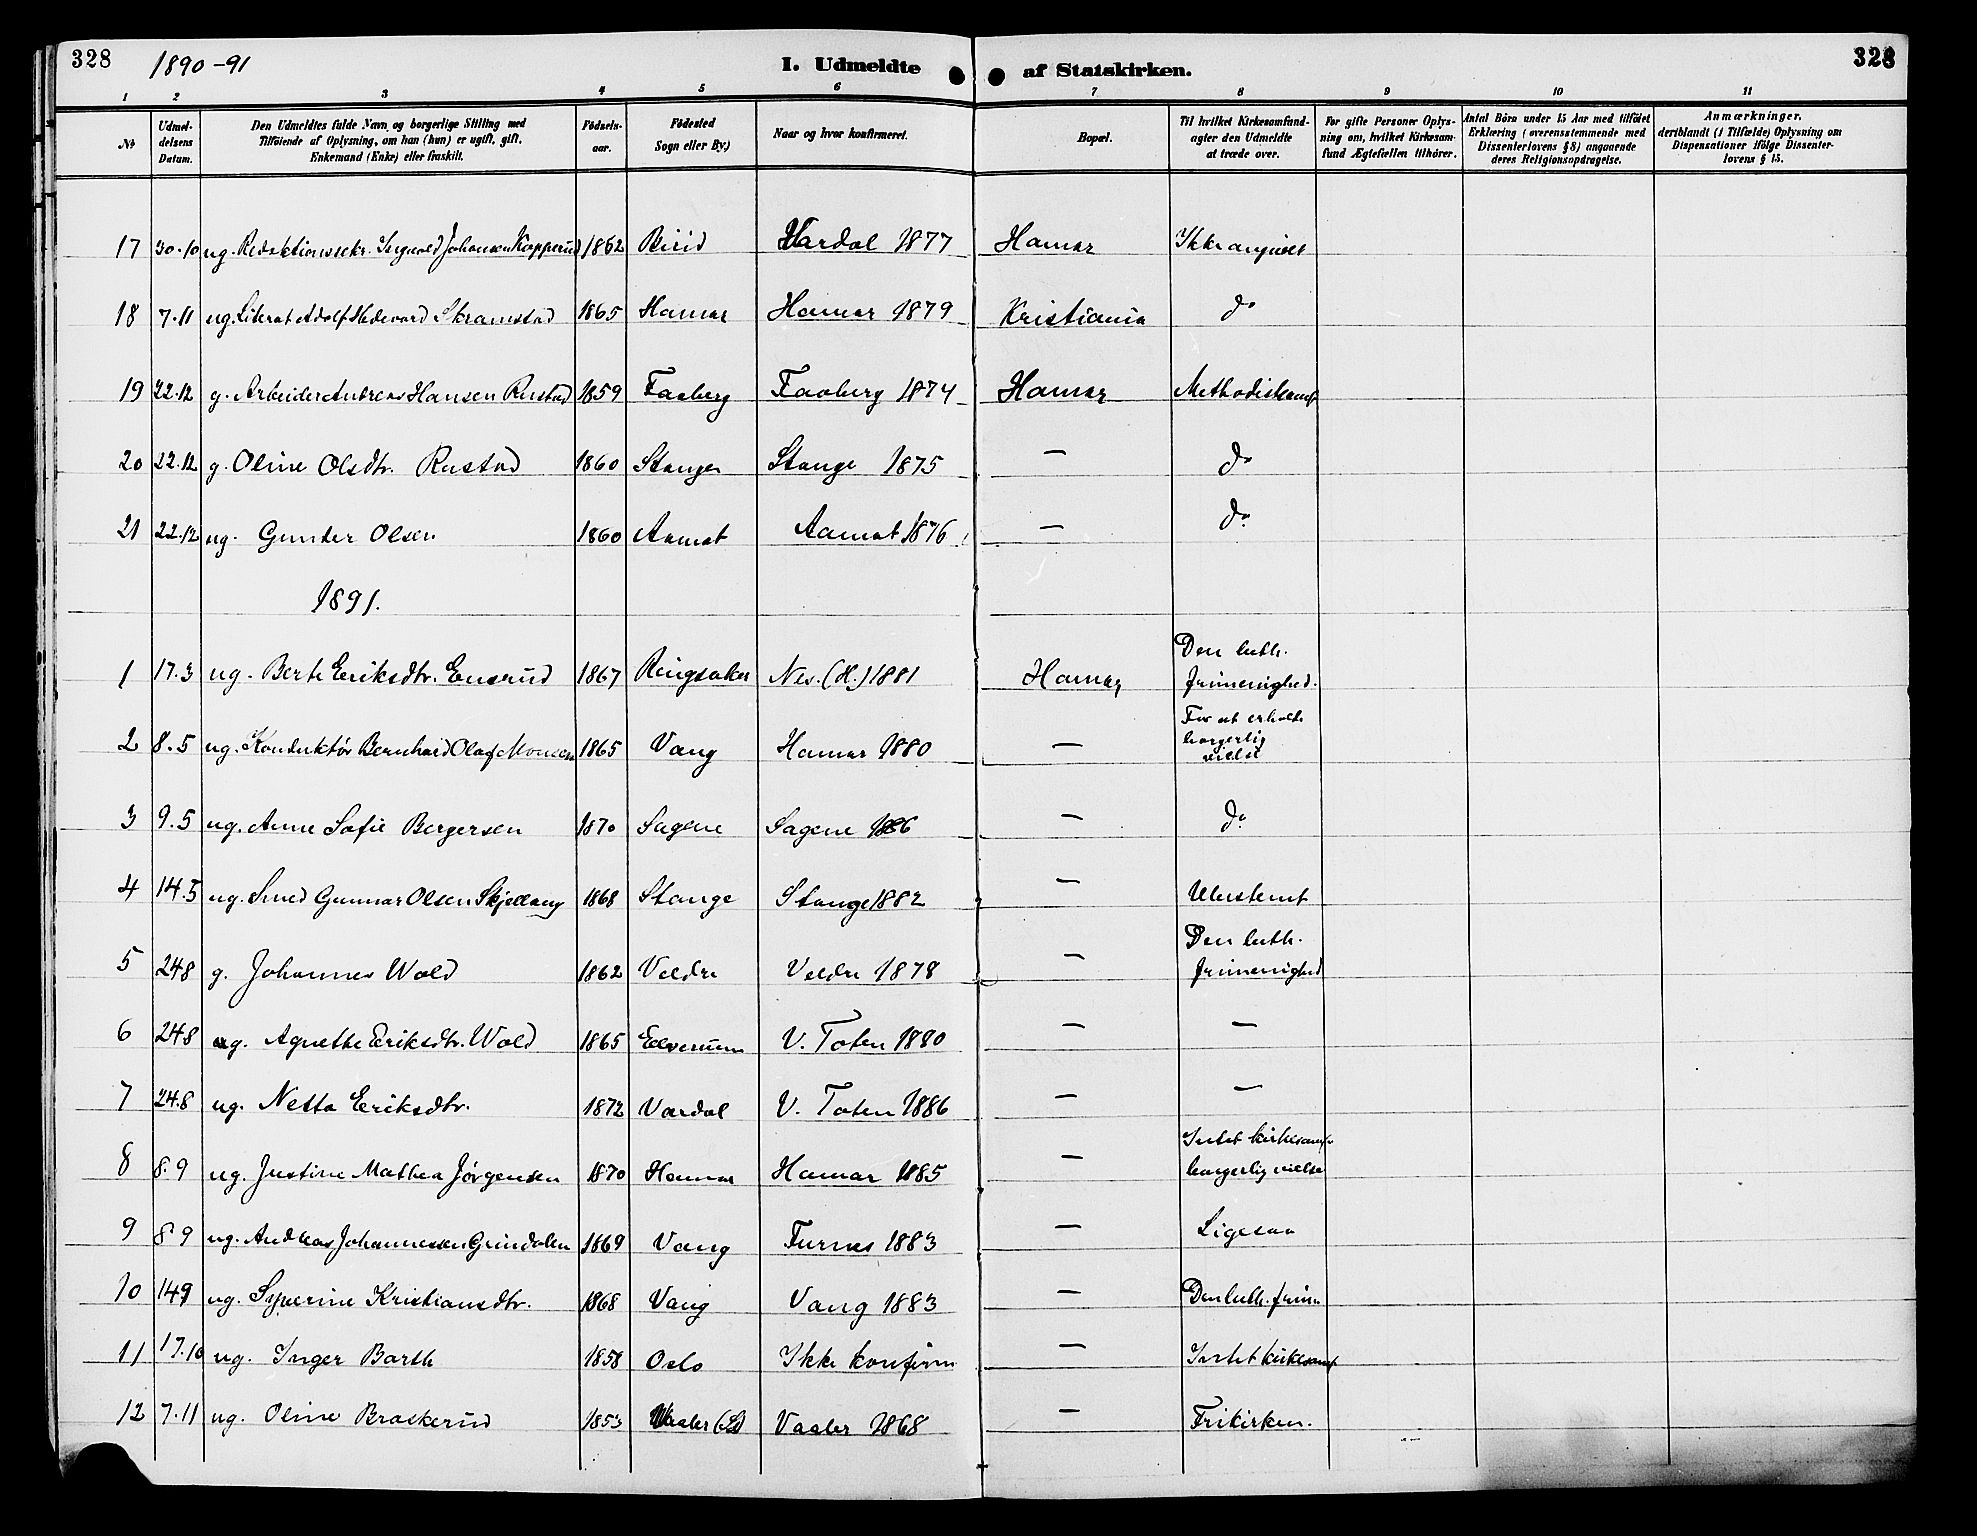 328 1890-91 I. Udmeldte af Statskirken. 328
1 2 3 4 5 6 7 8 9 10 11
№ | Udmel-delsens Datum. | Den Udmeldtes fulde Navn og borgerlige Stilling med Tilføiende af Oplysning, om han (hun) er ugift, gift, Enkemand (Enke) eller fraskilt. | Fødsels-aar. | Fødested Sogn eller By.) | Naar og hvor konfirmeret. | Bopæl. | Til hvilket Kirkesamfund-agter den Udmeldte at træde over. | For gifte Personer Oplys-ning om, hvilket Kirkesam-fund Ægtefællen tilhører. | Antal Børn under 15 Aar med tilføiet Erklæring (overensstemmende med Dissenterlovens § 8) angaaende deres Religionsopdragelse. | Anmærkninger, deriblandt (i Tilfælde) Oplysning om Dispensationer ifølge Dissenter-lovens § 15.
17 30.10 ug. Redaktionssekr. Ingvald Johansen Kopperud 1862 Birid Vardal 1877 Hamar Ikke angivet
18 7.11 ug. Literat Adolf Hedevard Skramstad 1865 Hamar Hamar 1879 Kristiania do
19 22.12 g. Arbeider Andreas Hansen Rustad 1859 Faaberg Faaberg 1874 Hamar Methodistsamf
20 22.12 g. Oline Olsdtr. Rustad 1860 Stange Stange 1875 — do
21 22.12 ug. Gunder Olsen 1860 Aamot Aamot 1876 — do
1891.
1 17.3 ug. Berte Eriksdtr. Ensrud 1867 Ringsaker Nes. (H.) 1881 Hamar Den luth. frimenighed.
2 8.5 ug. Konduktör Bernhard Olaf Monsen 1865 Vang Hamar 1880 — For at erholde borgerlig vielse
3 9.5 ug. Anne Sofie Bergersen 1870 Sagene Sagene 1886 — do
4 14.5 ug. Smed Gunnar Olsen Skjellang 1868 Stange Stange 1882 — Ubestemt
5 24.8 g. Johannes Wold 1862 Veldre Veldre 1878 — Den luth. frimenighed
6 24.8 g. Agnethe Eriksdtr. Wold 1865 Elverum V. Toten 1880 — —
7 24.8 ug. Netta Eriksdtr. 1872 Vardal V. Toten 1886 — —
8 8.9 ug. Justine Mathea Jörgensen 1870 Hamar Hamar 1885 — Intet kirkesamf borgerlig vielse
9 8.9 ug. Andreas Johannessen Grindalen 1869 Vang Furnes 1883 — Ligesaa
10 14.9 ug. Syverine Kristiansdtr. 1868 Vang Vang 1883 — Den luth. frim
11 17.10 ug. Inger Barth 1858 Oslo Ikke konfirm — Intet kirkesamf
12 7.11 ug. Oline Braskerud 1853 Vaaler (S) Vaaler 1868 — Frikirken.